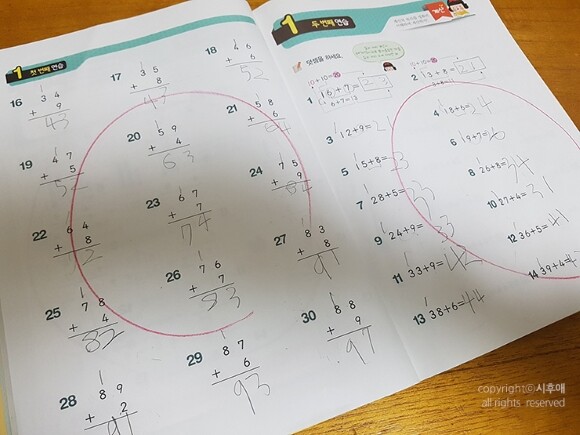 1 첫 번째 연습
16 34 + 9 43
17 35 + 8 43
18 46 + 6 52
19 47 + 5 52
20 59 + 4 63
21 58 + 6 64
22 64 + 8 72
23 67 + 7 74
24 75 + 9 84
25 78 + 4 82
26 76 + 7 83
27 83 + 8 91
28 89 + 2 91
29 87 + 6 93
30 88 + 9 97
1 두 번째 연습
계산
덧셈을 하세요.
10+10=20
1 16+7=
6+7=13
2 13+8=
3 12+9=21
4 18+6=24
5 15+8=
6 19+7=
7 28+5=33
8 26+8=34
9 24+9=33
10 27+4=31
11 33+9=42
12 36+5=41
13 38+6=44
14 39+4=4
copyrightⓒ시후애
all rights reserved